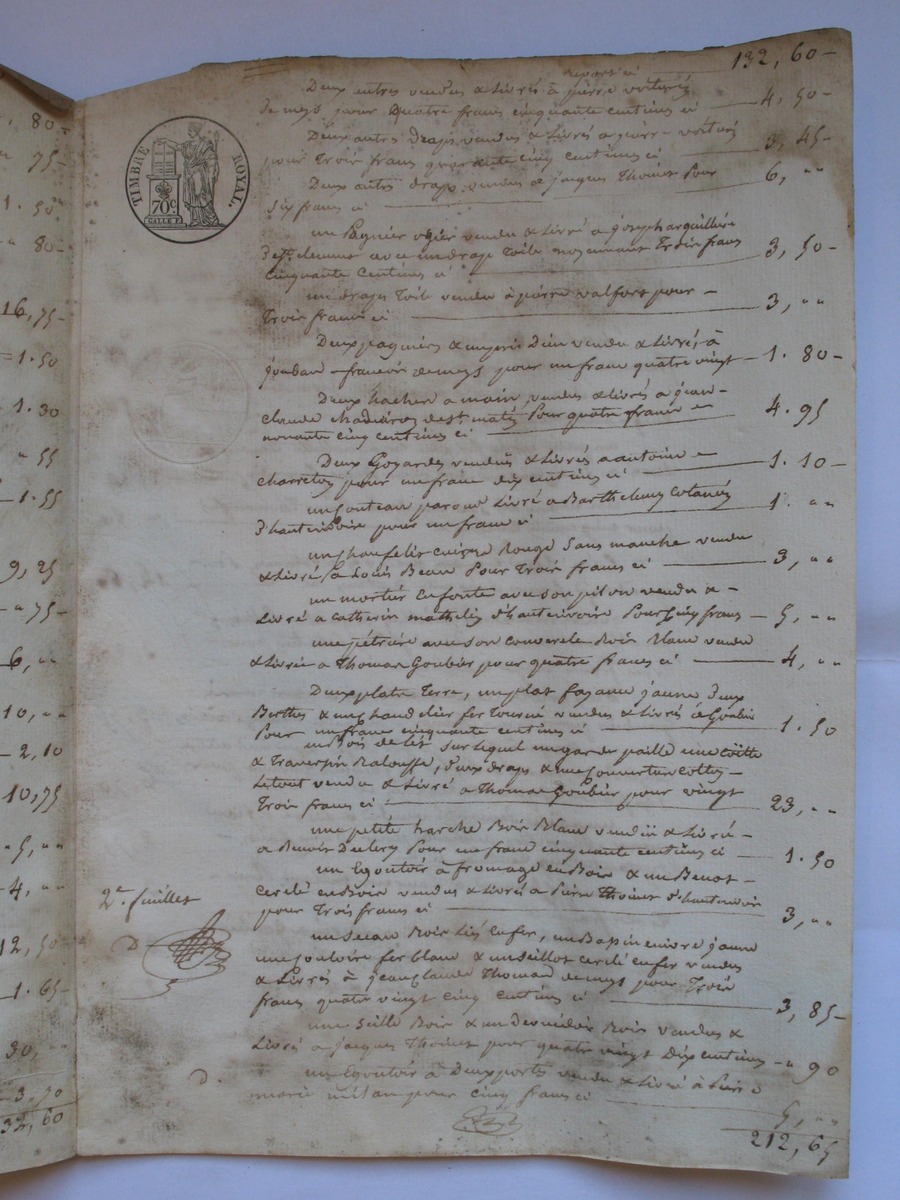 80-
75-
1. 50
80-
16, 75-
1. 50
1. 30
" 55
1. 55
9, 25
" 75-
6, ""
10, ""
2, 10
10, 75
5, ""
4, ""
12, 50
1. 65
30, ""
3. 50
132, 60
TIMBRE ROYAL.
70 c.
report ci 132, 60-
Deux autres vendus & Livrés à pierre voiturié
de mejs pour Quatre francs cinquante centimes ci 4, 50-
Deux autres Draps vendus & Livrés a pierre voiturié
pour Trois francs quarante cinq centimes ci 3, 45-
Deux autres draps vendus a jacques Thoinet pour 6, ""
Six francs ci
un Pagnier ozier vendu & Livré a joseph
avec un draps Toile moyennant Trois francs 3, 50-
cinquante centimes ci
un draps Toile vendu à pierre valfort pour 3, ""
Trois francs ci
Deux pagniers & vendu & Livrés à
françois demeys pour un franc quatre vingt 1. 80-
Deux haches a main vendus & Livrés a jean
claude Pour quatre francs 4. 95
nonante cinq centimes ci
Deux Goyardes vendus & Livrés a antoine
charreton pour un franc dix centimes ci 1. 10-
un couteau Livré a Barthelemy
D'hauterivoire pour un franc ci 1. ""
un cuivre Rouge Sans manche vendu
& Livré a Louis Beau Pour Trois francs ci 3, ""
un mortier en fonte avec son pilon vendu &
Livré a catherin mathelin d'hauterivoire Pour Cinq francs 5, ""
une pétriere avec son couvercle Bois Blanc vendu
& Livrée a Thomas Goubier pour quatre francs ci 4, ""
Deux plats Terre, un plat fayance jaune Deux
Berthes & un chandelier fer Tourné vendus & Livrés à Goubier
Pour un franc cinquante centimes ci 1. 50
un Bois de Lit Sur Lequel un garde paille une coëtte
& Traversin Balouffe, deux draps & une couverture cotton
Le tout vendu & Livré a Thomas Goubier pour vingt
Trois francs ci 23, ""
une petite harche Bois Blanc vendu & Livré
a Benoit Pour un franc cinquante centimes ci 1. 50
un Egoutoir à fromage en Bois & un Benot
cerclé en Bois vendus & Livrés a Pierre Thoinet d'hauterivoire
pour Trois francs ci 3, ""
un Seau Bois Lié en fer, un Bassin cuivre jaune
une couloire fer blanc & un seillot cerclé en fer vendus
& Livrés à jean claude Thomas demeys pour Trois
francs quatre vingt cinq centimes ci 3, 85-
une Seille Bois & un Devidoir Bois vendus &
Livré a jacques Thoinet pour quatre vingt Dix centimes " 90
un Egoutoir à Deux portes vendu & Livré à
marie pour cinq francs ci 5, ""
212, 65
2e. feuillet
D
D.